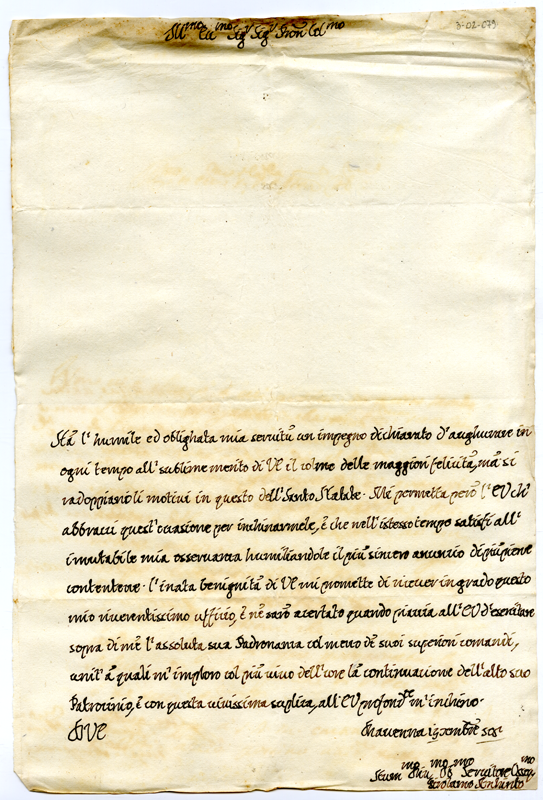 Ill.mo Ecc.mo Sig.r Sig.r Pron Col.mo
D-02-079
Stà l'humile ed oblighata mia servitù un impegno dichiarato d'aughurare in
ogni tempo all'sublime merito di VE il colme delle maggiori felicità, mà si
radoppiano li motivi in questo dell'Santo Natale. Mi permetta però l'EV ch'
abbracci quest'occasione per inchinarmele, è che nell'istesso tempo satisfi all'
imutabile mia osservanza humiliandole il più sincero anuncio di più piene
contenteze. l'inata benignità di VE mi promette di ricever in grado questo
mio riverentissimo uffitio, è ne sarò acertato quando piacia all'EV d'esercitare
sopra di mè l'assoluta sua Padronanza col mezo de suoi superiori comandi,
unit' à quali m'imploro col più vivo dell'core la continuacione dell'alto suo
Patrocinio, è con questa vivissima suplica, all'EV profond.te m'inchino.
Di VE
Ravenna 19 xmbre
Humil.mo Div.mo Ob.mo Servitore Osseq.mo
Girolamo